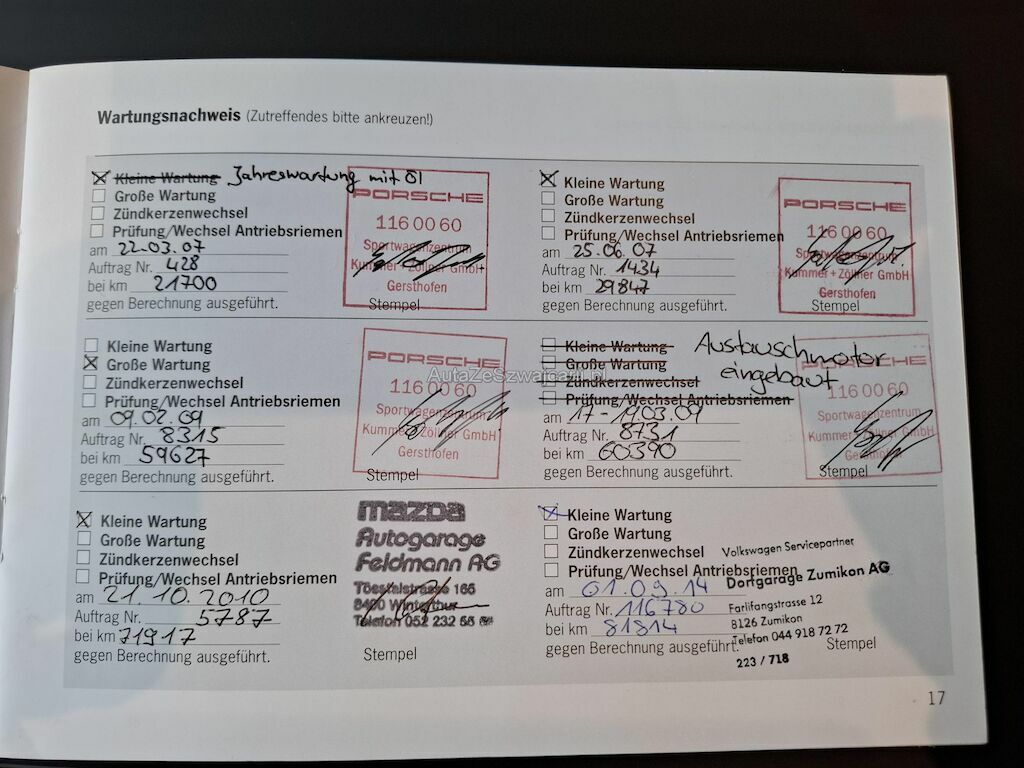 Wartungsnachweis (Zutreffendes bitte ankreuzen!)
Kleine Wartung Jahreswartung mit Öl
Große Wartung
Zündkerzenwechsel
Prüfung/Wechsel Antriebsriemen
am 22.03.07
Auftrag Nr. 428
bei km 21700
gegen Berechnung ausgeführt.
PORSCHE
116 00 60
Sportwagenzentrum
Kummer + Zöllner GmbH
Gersthofen
Stempel
Kleine Wartung
Große Wartung
Zündkerzenwechsel
Prüfung/Wechsel Antriebsriemen
am 25.06.07
Auftrag Nr. 1434
bei km 29847
gegen Berechnung ausgeführt.
PORSCHE
116 00 60
Sportwagenzentrum
Kummer + Zöllner GmbH
Gersthofen
Stempel
Kleine Wartung
Große Wartung
Zündkerzenwechsel
Prüfung/Wechsel Antriebsriemen
am 09.02.09
Auftrag Nr. 8315
bei km 59627
gegen Berechnung ausgeführt.
PORSCHE
116 00 60
Sportwagenzentrum
Kummer + Zöllner GmbH
Gersthofen
Stempel
AutaZeSzwajcarii.pl
Kleine Wartung
Große Wartung
Zündkerzenwechsel
Prüfung/Wechsel Antriebsriemen
Austauschmotor
eingebaut
am 17-19.03.09
Auftrag Nr. 8731
bei km 60390
gegen Berechnung ausgeführt.
PORSCHE
116 00 60
Sportwagenzentrum
Kummer + Zöllner GmbH
Gersthofen
Stempel
Kleine Wartung
Große Wartung
Zündkerzenwechsel
Prüfung/Wechsel Antriebsriemen
am 21.10.2010
Auftrag Nr. 5787
bei km 71917
gegen Berechnung ausgeführt.
mazda
Autogarage
Feldmann AG
Tösstalstrasse 165
8400 Winterthur
Telefon 052 232
Stempel
Kleine Wartung
Große Wartung
Zündkerzenwechsel
Prüfung/Wechsel Antriebsriemen
am 01.09.14
Auftrag Nr. 116780
bei km 81814
gegen Berechnung ausgeführt.
Volkswagen Servicepartner
Dorfgarage Zumikon AG
Farlifangstrasse 12
8126 Zumikon
Telefon 044 918 72 72
223 / 718
Stempel
17